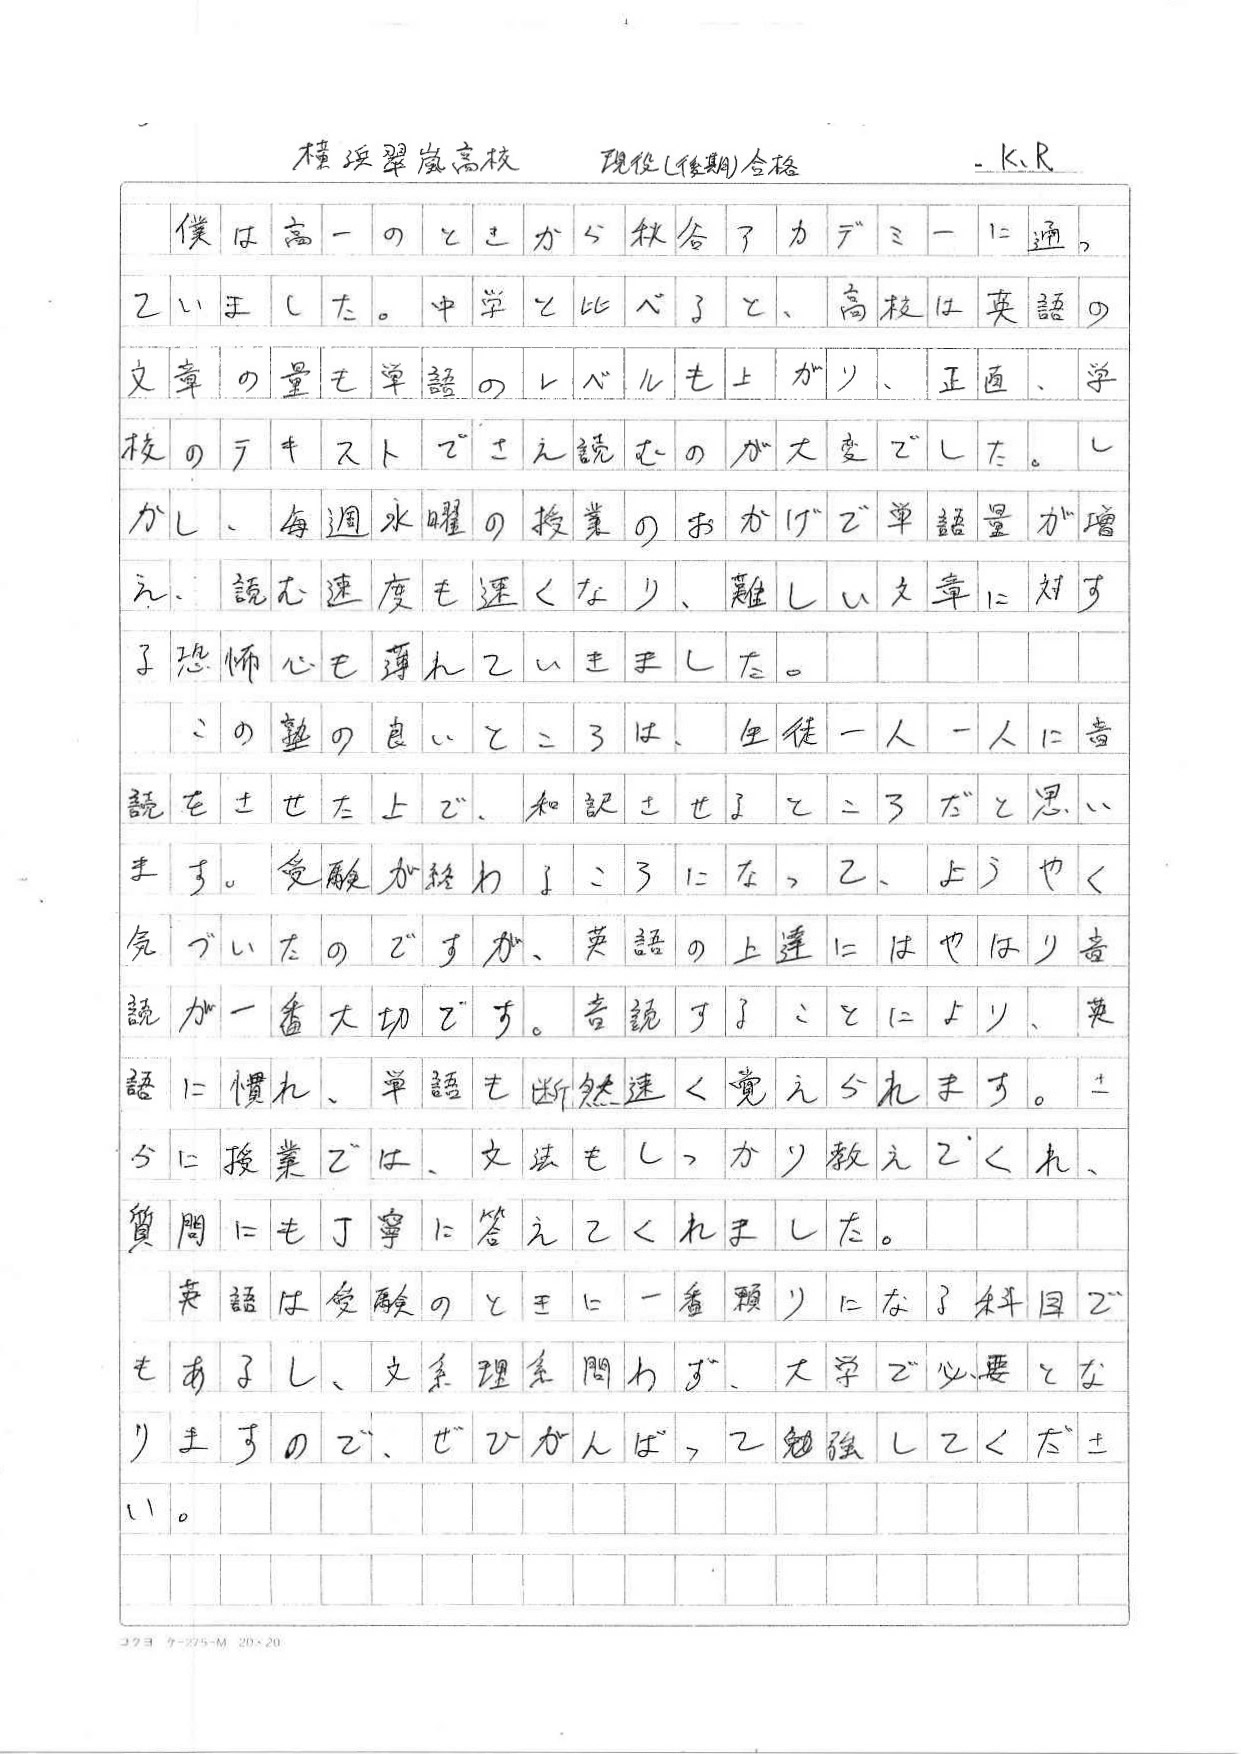 横浜翠嵐高校 現役(後期)合格 - K.R
僕は高一のときから秋谷アカデミーに通っ
ていました。中学と比べると、高校は英語の
文章の量も単語のレベルも上がり、正直、学
校のテキストでさえ読むのが大変でした。し
かし、毎週水曜の授業のおかげで単語量が増
え、読む速度も速くなり、難しい文章に対す
る恐怖心も薄れていきました。
この塾の良いところは、生徒一人一人に音
読をさせた上で、和訳させるところだと思い
ます。受験が終わるころになって、ようやく
気づいたのですが、英語の上達にはやはり音
読が一番大切です。音読することにより、英
語に慣れ、単語も断然速く覚えられます。さ
らに授業では、文法もしっかり教えてくれ、
質問にも丁寧に答えてくれました。
英語は受験のときに一番頼りになる科目で
もあるし、文系理系問わず、大学で必要とな
りますので、ぜひがんばって勉強してくださ
い。
コクヨ ケー275-M 20×20